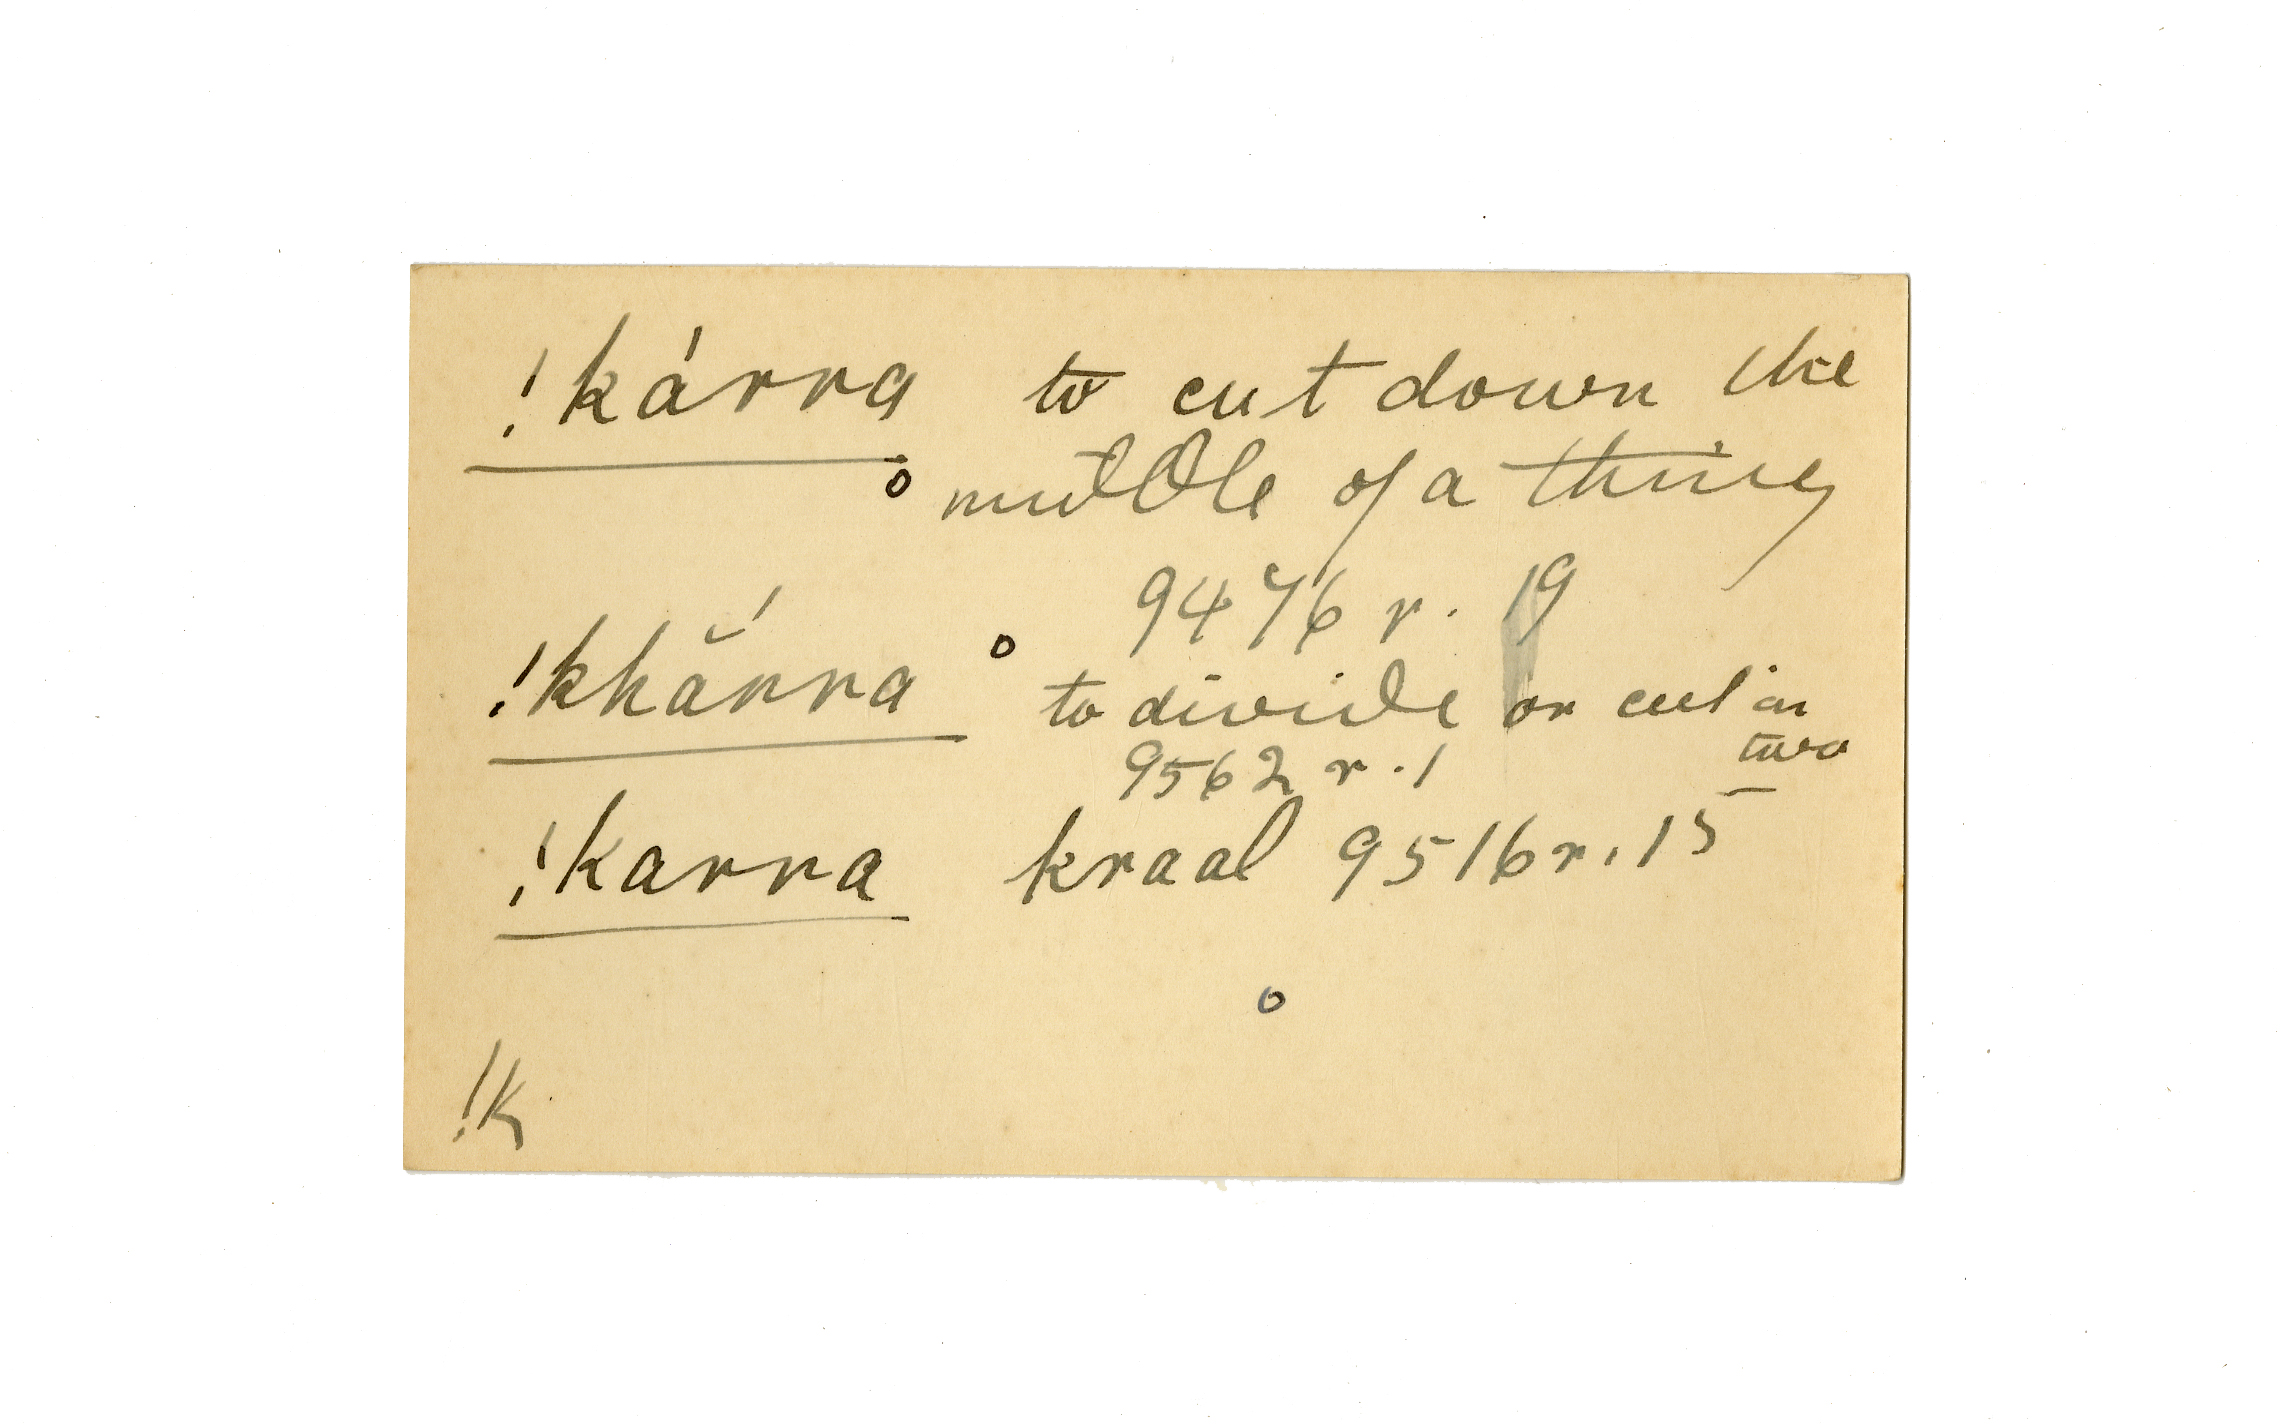 !kárra to cut down the
middle of a thing
9476 r. 19
!khắrra to divide or cut in
two
9562 r. 1
!karra kraal 9516 r. 15
!K